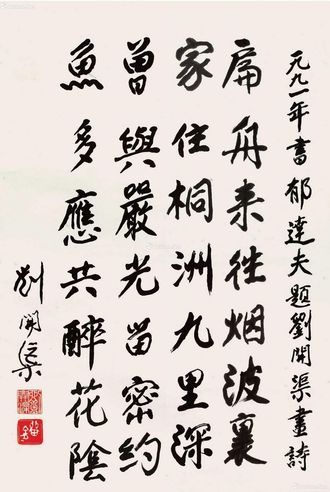 一九九一年書郁達夫題劉開渠畫詩
扁舟来往烟波裏
家住桐洲九里深
曾與嚴光留密約
魚多應共醉花陰
劉開渠